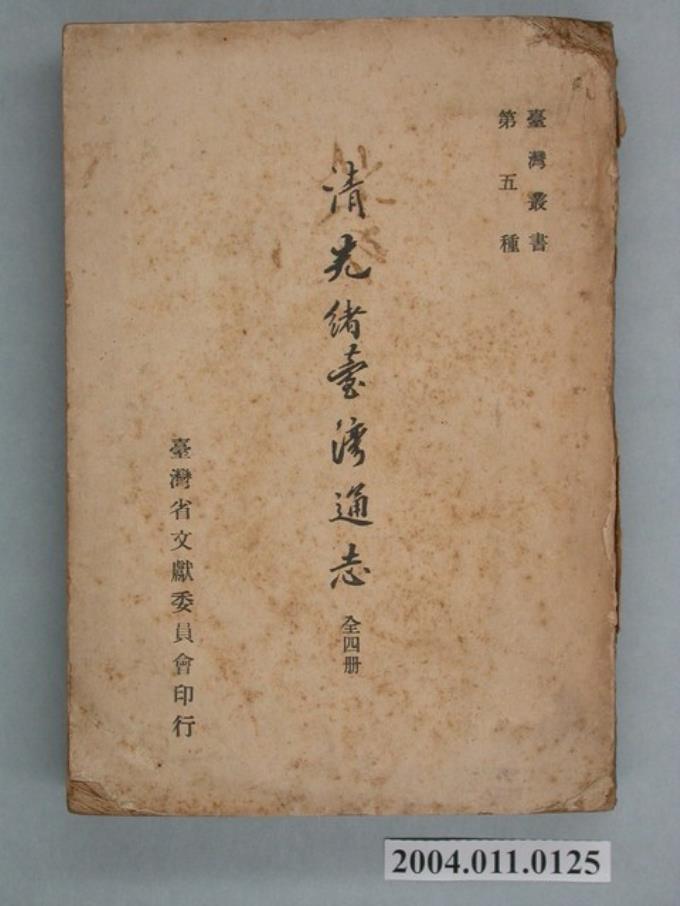 臺灣叢書
第五種
清光緒臺灣通志
全四册
臺灣省文獻委員會印行
2004.011.0125